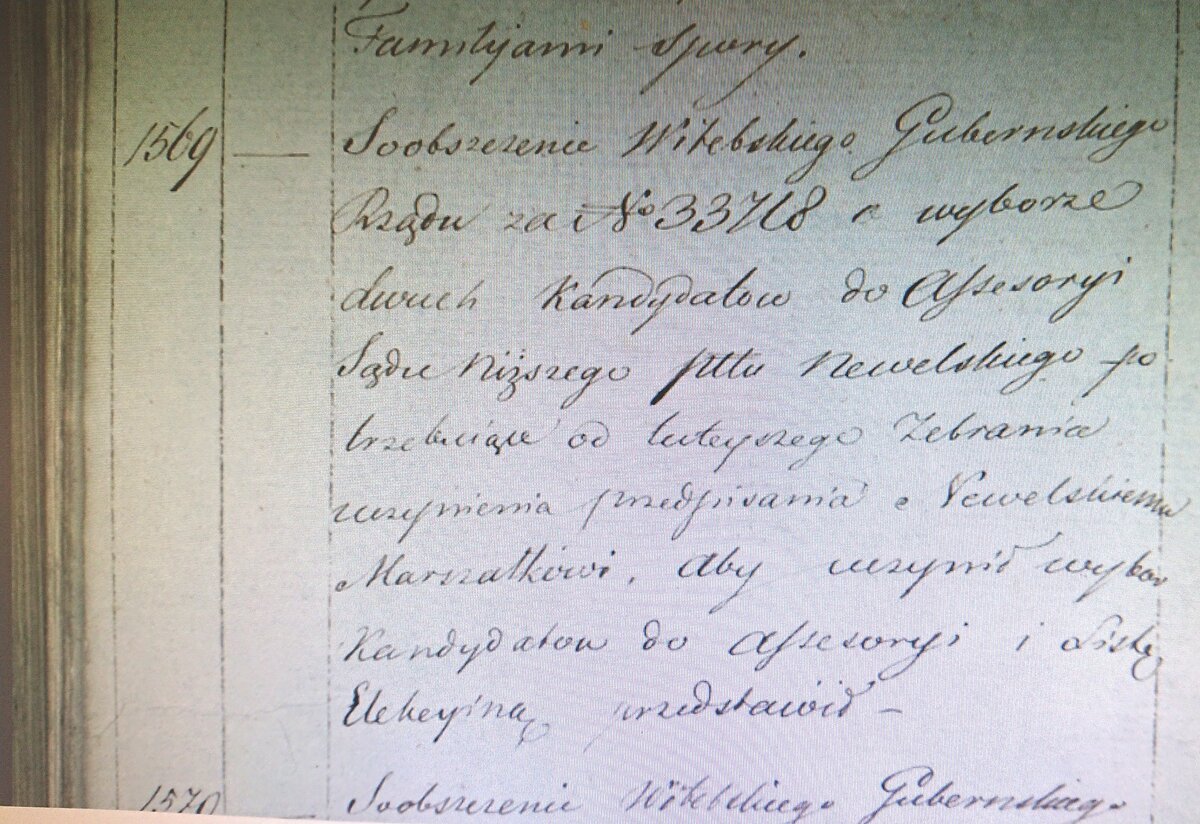 Familijami spory.
1569 — Soobszczenie Witebskiego Gubernskiego
Rządu za No 33718 o wyborze
dwuch Kandydatow do Assesoryi
Sądu Niższego pttu Newelskiego po
trzebuiące od tuteyszego Zebrania
uczynienia przedpisania Newelskiemu
Marszałkowi, aby uczynił wybor
Kandydatow do Assesoryi i Listę
Elekcyiną przedstawił –
1570 Soobszczenie Witebskiego Gubernskiego